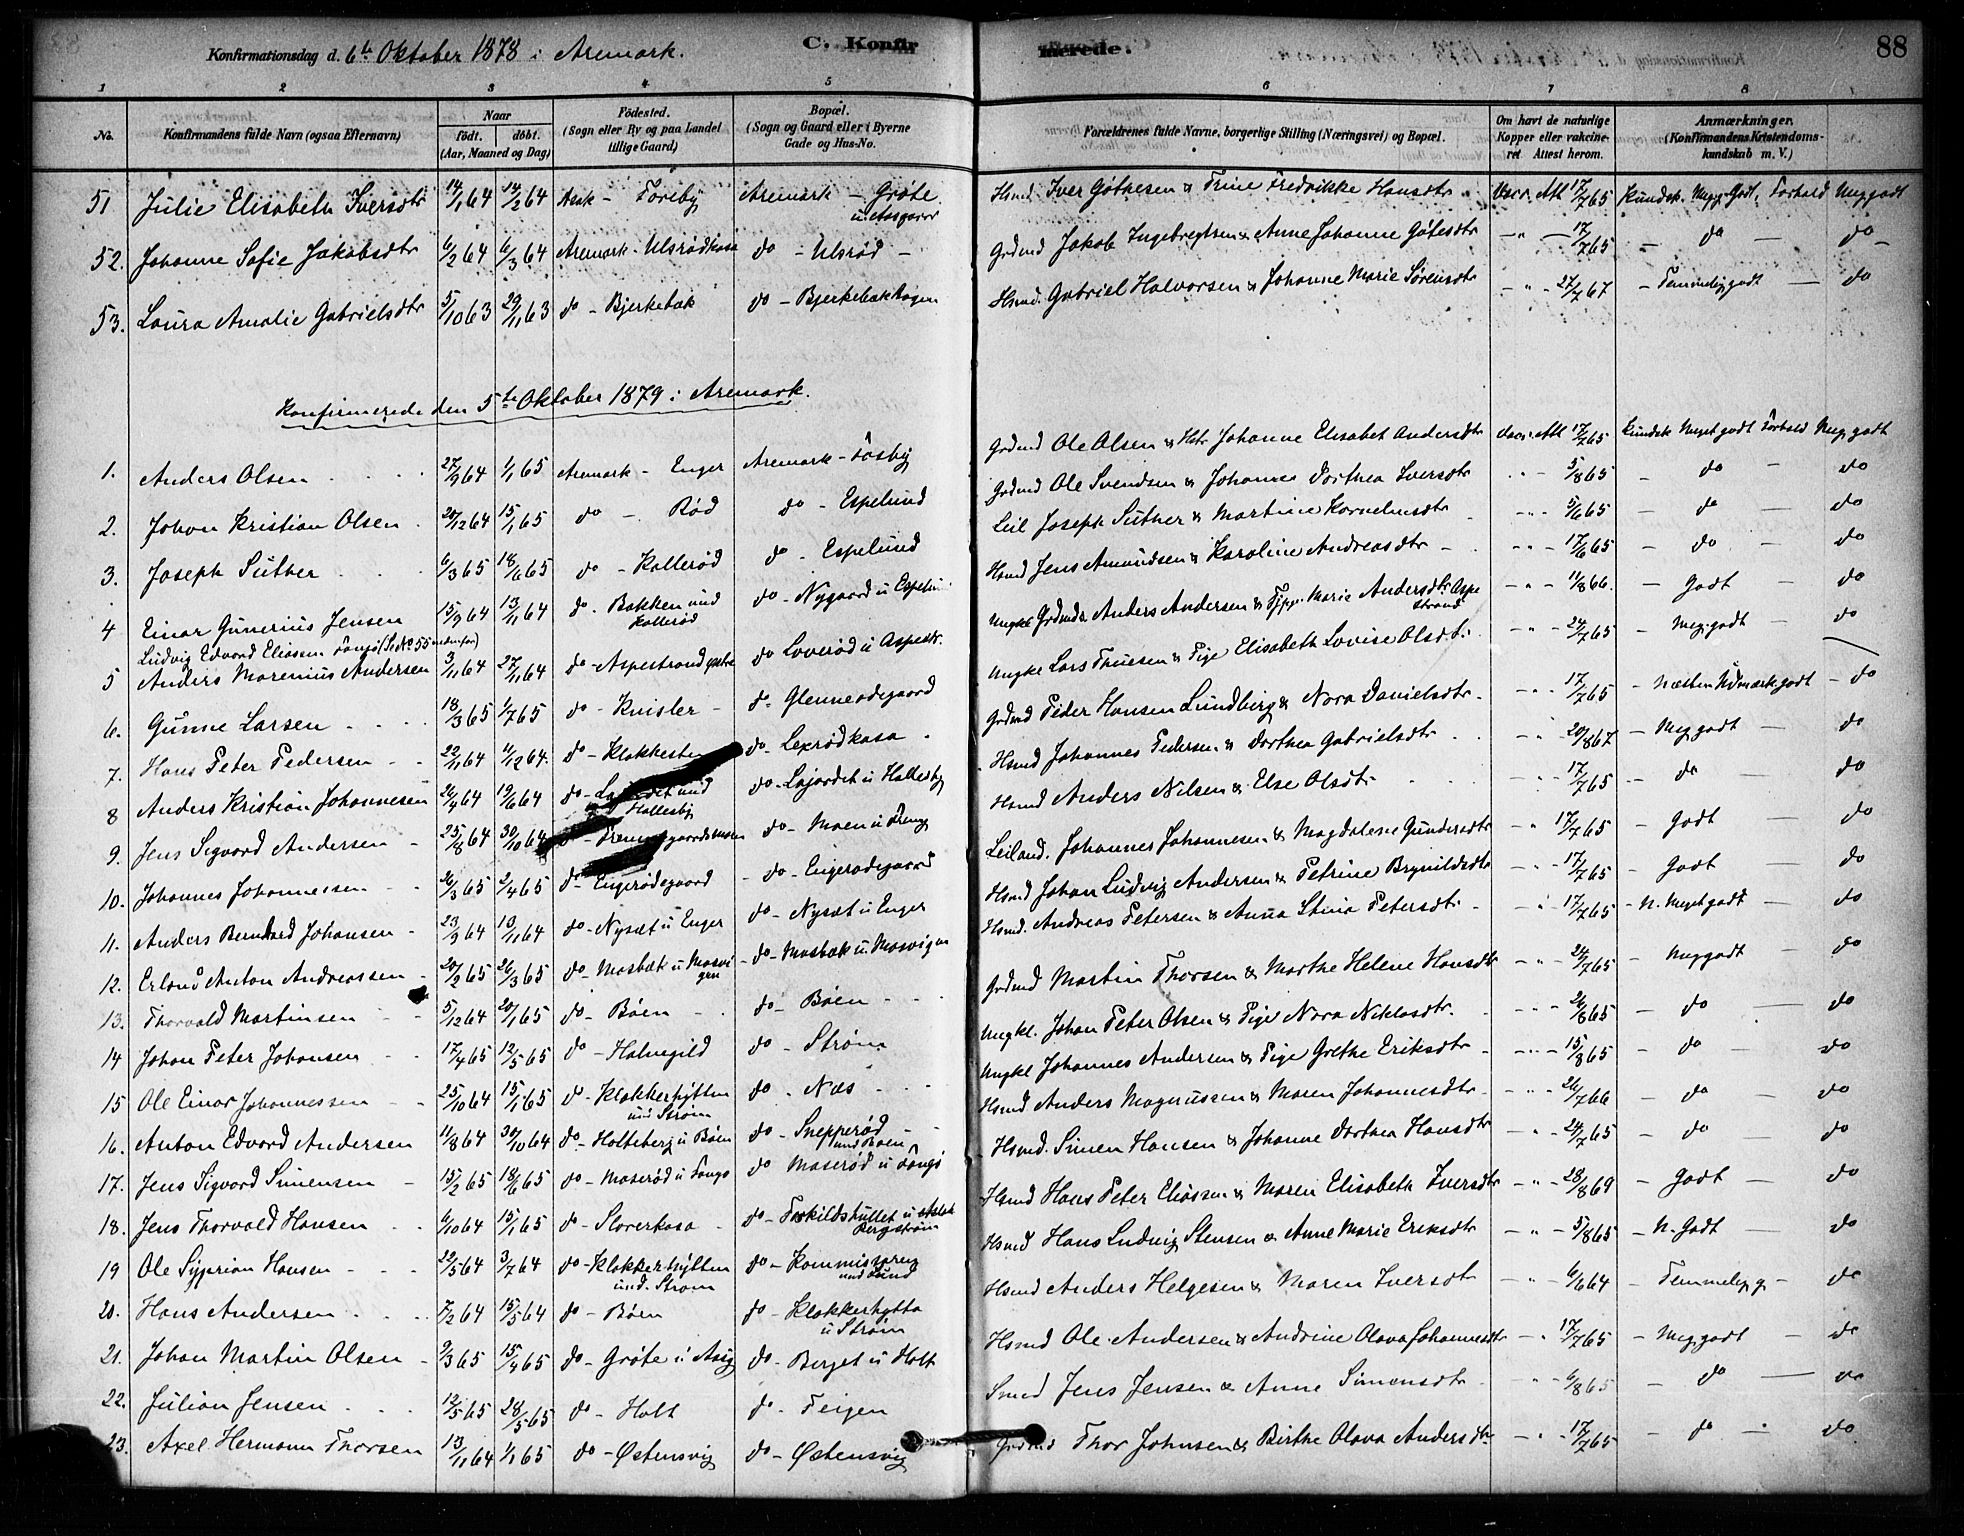 Konfirmationsdag d. 6te Oktober 1878 i Aremark. C. Konfirmerede. 88
1 2 3 4 5 6 7 8
No. Konfirmandens fulde Navn (ogsaa Efternavn) Naar födt. döbt. (Aar, Maaned og Dag) Födested. (Sogn eller By og paa Landet tillige Gaard) Bopæl. (Sogn og Gaard eller i Byerne Gade og Hus-No. Forældrenes fulde Navne, borgerlige Stilling (Næringsvei) og Bopæl. Om havt de naturlige Kopper eller vakcineret Attest herom. Anmærkninger. (Konfirmandens Kristendomskundskab m. V.)
51 Julie Elisabeth Iversdtr 14/1 64 14/2 64 Ask - Foseby Aremark - Grôte u Aasgaard Hsmd Iver Gôthesen & Trine Fredrikke Hansdtr Vacc. Att 17/7 65 Kundsk. Meg. Godt, Forhold Meg godt
52. Johanne Sofie Jakobsdtr 6/2 64 6/3 64 Aremark - Ulsrødkasa do - Ulsrød - Grdmd Jakob Ingebregtsen & Anne Johanne Gôtesdtr - " - 17/7 65 - do - do -
53. Laura Amalie Gabrielsdtr 5/10 63 29/11 63 do - Bjerkebæk do - Bjerkebækhagen Hsmd. Gabriel Halvorsen & Johanne Marie Sørensdtr - " - 27/7 67 - Temmelig godt - do
Konfirmerede den 5te Oktober 1879 i Aremark.
1. Anders Olsen 27/9 64 1/1 65 Aremark - Enger Aremark - Fôsby Grdmd Ole Olsen & Hstr Johanne Elisabet Andersdtr Vacc. Att 17/7 65 Kundsk Meget godt Forhold Meg godt
2. Johan Kristian Olsen 20/12 64 15/1 65 do - Rød do - Espelund Grdmd Ole Svendsen & Johanne Dorthea Iversdtr " - 5/8 65 - do - do
3. Joseph Suther 6/3 65 18/6 65 do - Kollerød do - Espelund Leil Joseph Suther & Martine Kornelusdtr - " - 5/6 65 - do - do
4 Einar Gunerius Jensen 15/9 64 13/11 64 do - Bakken und Kollerød do - Nygaard u Espelund Hsmd Jens Amundsen & Karoline Andreasdtr - " - 17/6 65 - do - do
Ludvig Edvard Eliassen
5 Anders Marenius Andersen 3/11 64 27/11 64 do - Aspestrand do Loverød u Aspestr. Ungkl Grdmds Anders Andersen & Marie Andersdtr Aspestrand - " - 11/8 66. - Godt - do
6. Gunne Larsen 18/3 65 1/7 65 do - Knisler - do Glenneødegaard Ungkl Lars Thuesen & Pige Elisabeth Lovise Olsdtr. - " - 24/7 65 - Meg. godt - do
7. Hans Peter Pedersen 22/11 64 11/12 64. do - Klokkestu do - Lexrødkasa Grdmd Peder Hansen Lundberg & Nora Danielsdtr - " 17/7 65 - næsten Udmærk. godt - do
8 Anders Kristian Johannesen 26/4 64 19/6 64 do - und Hallesby do - Lajordet u Hallesby Hsmd Johannes Pedersen & Dorthea Gabrielsdtr " 20/8 67 - Meg godt - do
9. Jens Sigvard Andersen 25/8 64 30/10 64 do - Moen u Hsmd Anders Nilsen & Else Olsdtr " 17/7 65 - do - do
10. Johannes Johannessen 26/3 65 2/4 65 do - Engerødegaard do - Engerødegaard Leiland. Johannes Johannesen & Magdalene Gundersdtr - " 17/7 65 - Godt - do
11. Anders Bernhard Johansen 23/9 64 13/11 64 do - Nysæt u Enger do - Nysæt u Enger Hsmd Johan Ludvig Andersen & Petrine Brynildsdtr - " - 17/7 65 - Godt - do
12. Erland Anton Andreassen 20/2 65 26/3 65 do - Mosbæk u Mosvigen do - Mosbæk u. Mosvigen Hsmd. Andreas Petersen & Anna Stina Petersdtr - " - 17/7 65 - N. Meget godt - do
13. Thorvald Martinsen 5/12 64 20/1 65 do - Bôen do - Bôen Grdmd Martin Thorsen & Marthe Helene Hansdtr - " - 24/7 65 - Meg godt - do
14 Johan Peter Johansen 17/4 65 12/5 65 do - Holmegild do - Strøm Ungkl. Johan Peter Olsen & Pige Nora Niklasdtr. - " - 26/8 65 - do - do
15 Ole Einar Johannessen 25/10 64 15/1 65 do - Klokkerhytten und Strøm do - Næs Ungkl Johannes Andersen & Pige Grethe Eriksdtr - " - 15/8 65 - do - do
16. Anton Edvard Andersen 11/8 64 30/10 64 do - Holteberg u Bôen do - Snepperød und Bôen Hsmd Anders Magnussen & Maren Johannesdtr - " - 26/7 66 - do - do
17. Jens Sigvard Simensen 15/2 65 18/6 65 do - Moserød u Fangs do Moserød u Hsmd. Simen Hansen & Johanne Dorthea Hansdtr - " - 24/7 65 - do - do
18. Jens Thorvald Hansen 6/10 64 15/1 65 do - Sloverkasa do - Torkildshullet u Bergstrøm Hsmd Hans Peter Eliassen & Maren Elisabeth Iversdtr - " - 28/8 69 - Godt - do
19 Ole Syprian Hansen 22/5 64 3/7 64 do - Klokkerhytten und. Strøm do - Kommisværen und Lund Hsmd Hans Ludvig Stensen & Anne Marie Eriksdtr - " - 5/8 65 - N. Godt - do
20. Hans Andersen 7/2 64 15/5 64 do - Bôen do - Klokkerhytta u Strøm Hsmd Anders Helgesen & Maren Iversdtr - " - 6/6 64 - Temmelig g - do
21. Johan Martin Olsen 9/3 65 15/4 65 do - Grôte u Aasg do - Berget u Holt Hsmd Ole Andersen & Andrine Olava Johannesdtr - " 17/7 65 - Meg godt - do
22. Julian Jensen 12/5 65 28/5 65 do - Holt do - Feigen Smed Jens Jensen & Anne Simensdtr - " - 6/8 65 - do - do
23. Axel Hermann Thorsen 13/11 64 1/1 65 do - Østensvig do - Østensvig Grdmd Thor Johnsen & Birthe Olava Andersdtr - " - 17/7 65 - do - do